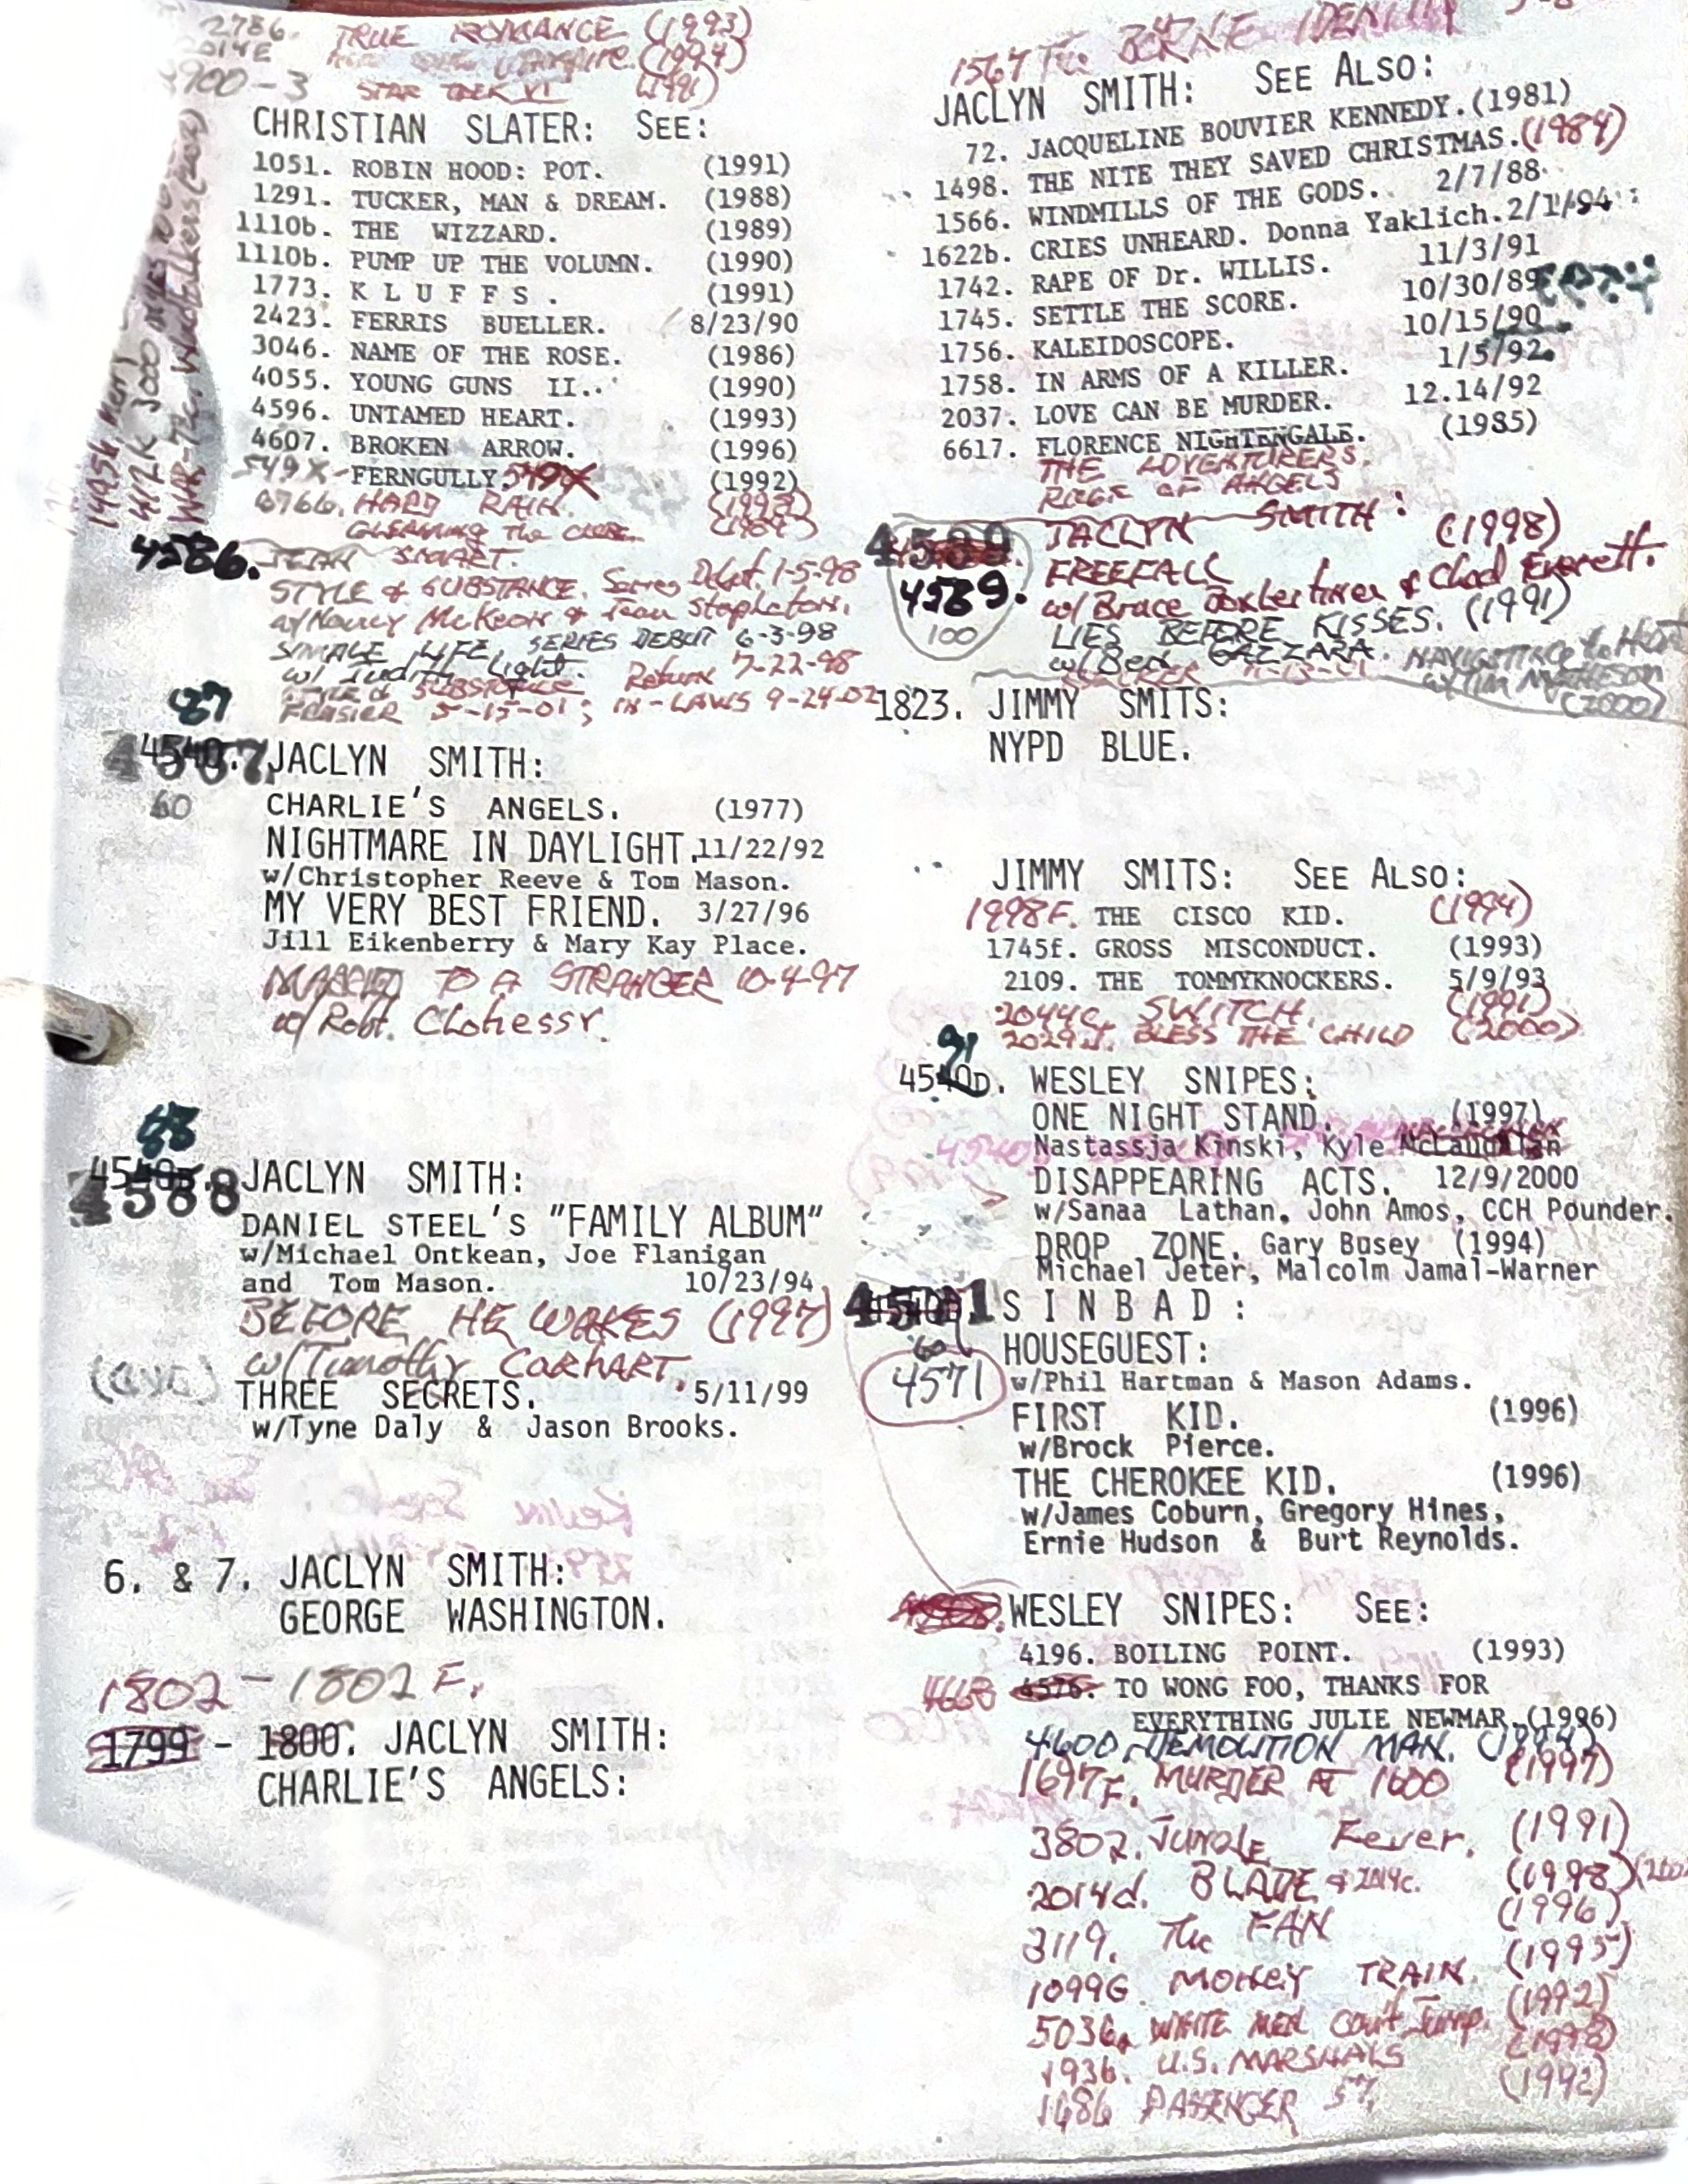 2786. TRUE ROMANCE (1993)
2014E (1994)
3900-3 STAR TREK VI (1991)
CHRISTIAN SLATER: SEE:
1051. ROBIN HOOD: POT. (1991)
1291. TUCKER, MAN & DREAM. (1988)
1110b. THE WIZZARD. (1989)
1110b. PUMP UP THE VOLUMN. (1990)
1773. K L U F F S . (1991)
2423. FERRIS BUELLER. 8/23/90
3046. NAME OF THE ROSE. (1986)
4055. YOUNG GUNS II.. (1990)
4596. UNTAMED HEART. (1993)
4607. BROKEN ARROW. (1996)
549X- FERNGULLY. 549X (1992)
HARD RAIN.
GLEAMING The CUBE.
4586. JEAN SMART.
STYLE & SUBSTANCE. Series Debut. 1-5-98
w/Nancy McKeon & Jean Stapleton.
SIMPLE LIFE, SERIES DEBUT 6-3-98
w/ Judith Light.
STYLE & SUBSTANCE Return 7-22-98
FRASIER 5-15-01; IN-LAWS 9-24-02
87
4587. JACLYN SMITH:
60
CHARLIE'S ANGELS. (1977)
NIGHTMARE IN DAYLIGHT. 11/22/92
w/Christopher Reeve & Tom Mason.
MY VERY BEST FRIEND. 3/27/96
Jill Eikenberry & Mary Kay Place.
MARRIED TO A STRANGER 10-4-97
w/ Robt. Clohessy.
88
4588 JACLYN SMITH:
DANIEL STEEL'S "FAMILY ALBUM"
w/Michael Ontkean, Joe Flanigan
and Tom Mason. 10/23/94
BEFORE HE WAKES (1997)
w/Timothy CARHART.
THREE SECRETS. 5/11/99
w/Tyne Daly & Jason Brooks.
6. & 7. JACLYN SMITH:
GEORGE WASHINGTON.
1802 - 1802 F.
1799 - 1800. JACLYN SMITH:
CHARLIE'S ANGELS:
1567 The BORNE IDENTITY
JACLYN SMITH: SEE ALSO:
72. JACQUELINE BOUVIER KENNEDY. (1981)
1498. THE NITE THEY SAVED CHRISTMAS. (1984)
1566. WINDMILLS OF THE GODS. 2/7/88
1622b. CRIES UNHEARD. Donna Yaklich. 2/1/94
1742. RAPE OF Dr. WILLIS. 11/3/91
1745. SETTLE THE SCORE. 10/30/89
1756. KALEIDOSCOPE. 10/15/90
1758. IN ARMS OF A KILLER. 1/5/92
2037. LOVE CAN BE MURDER. 12.14/92
6617. FLORENCE NIGHTENGALE. (1985)
THE ADVENTURERS.
RAGE OF ANGELS
4589 JACLYN SMITH:
FREEFALL (1998)
4589. w/Bruce Boxleitner & Chad Everett.
100
LIES BEFORE KISSES. (1991)
w/Ben GAZZARA.
NAVIGATING the HEART
w/TIM MATHESON
(2000)
1823. JIMMY SMITS:
NYPD BLUE.
JIMMY SMITS: SEE ALSO:
1998F. THE CISCO KID. (1994)
1745f. GROSS MISCONDUCT. (1993)
2109. THE TOMMYKNOCKERS. 5/9/93
2044c. SWITCH. (1991)
2029J. BLESS THE CHILD (2000)
91
4540D. WESLEY SNIPES:
ONE NIGHT STAND. (1997)
Nastassja Kinski, Kyle McLaughlan
DISAPPEARING ACTS. 12/9/2000
w/Sanaa Lathan, John Amos, CCH Pounder.
DROP ZONE. Gary Busey (1994)
Michael Jeter, Malcolm Jamal-Warner
S I N B A D :
60 HOUSEGUEST:
4571 w/Phil Hartman & Mason Adams.
FIRST KID. (1996)
w/Brock Pierce.
THE CHEROKEE KID. (1996)
w/James Coburn, Gregory Hines,
Ernie Hudson & Burt Reynolds.
WESLEY SNIPES: SEE:
4196. BOILING POINT. (1993)
4668 4576. TO WONG FOO, THANKS FOR
EVERYTHING JULIE NEWMAR. (1996)
4600 DEMOLITION MAN.
1697F. MURDER AT 1600 (1997)
3802. Jungle Fever. (1991)
2014d. BLADE & 2014c. (1998)
3119. The FAN (1996)
1099G MONEY TRAIN. (1995)
5036a WHITE MEN Can't Jump. (1992)
1936. U.S. MARSHALS (1998)
1686 PASSENGER 57. (1992)